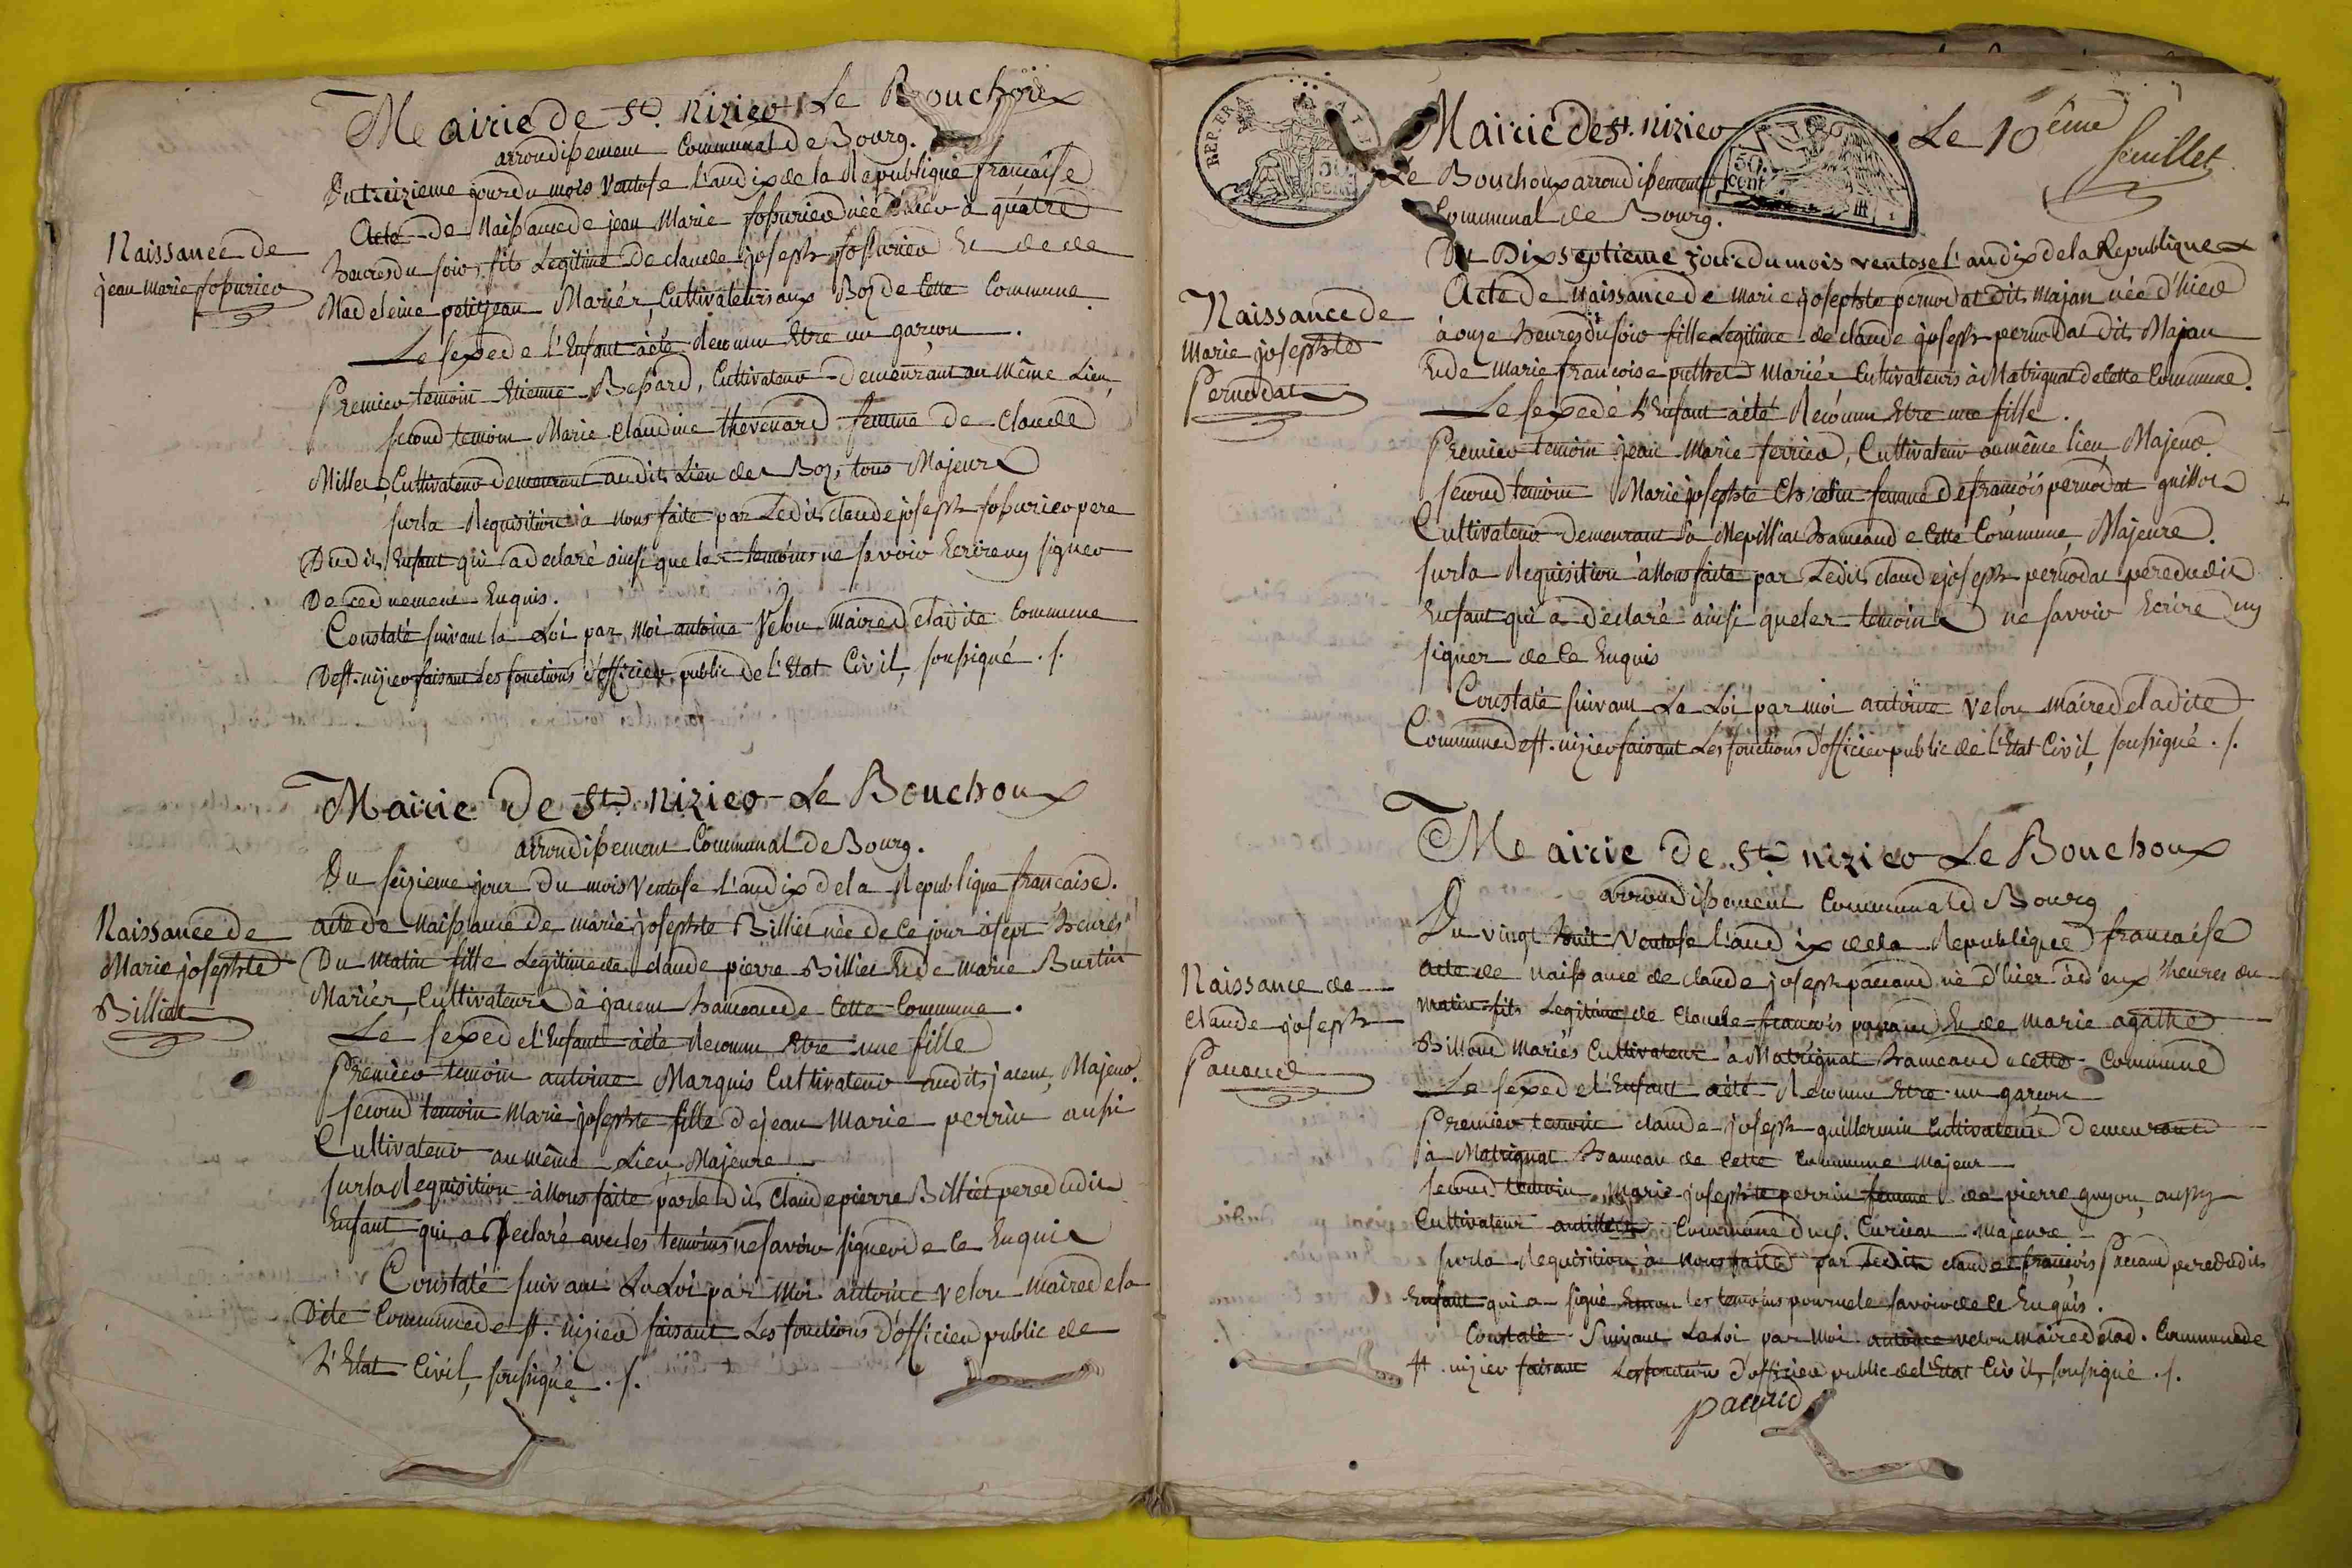 Mairie de St. nizier Le Bouchoux
arrondissement Communal de Bourg.
Du treizieme jour du mois Ventose l'an dix de la Republique francaise
Acte de Naissance de jean Marie fossurier née hier à quatre
heures du soir, fils Legitime de claude joseph fossurier Et de
Madeleine petitjean Mariés, Cultivateurs aux Boz de Cette Commune
Le sexe de l'Enfant à été Reconnu Etre un garçon.
Premier temoin Etienne Bessard, Cultivateur demeurant au même Lieu,
second temoin Marie Claudine thevenard femme de Claude
Millet, Cultivateur demeurant audit Lieu des Boz, tous Majeurs
sur la Requisition à Nous faite par Ledit claude joseph fossurier pere
Dudit Enfant qui a declaré ainsi que les temoins ne savoir Ecrire ny signer
De ce Enquis.
Constaté suivant la Loi par Moi antoine Velon maire de ladite Commune
De st. nizier faisant Les fonctions d'officier public de l'Etat Civil, soussigné ./.
Naissance de
jean marie fossurier
Mairie De St. nizier Le Bouchoux
arrondissement Communal de Bourg.
Du seizieme jour Du mois Ventose L'an dix de la Republique francaise.
acte de Naissance de marie josephte Billiet née de Ce jour à sept heures
Du matin fille Legitime de claude pierre Billiet Et de Marie Burtin
Mariés, Cultivateurs à jacem hameau de Cette Commune.
Le sexe de l'Enfant à été Reconnu Etre une fille
Premier temoin antoine Marquis Cultivateur audit jacem, Majeur.
second temoin Marie josephte fille de jean Marie perrin aussi
Cultivateur au même Lieu Majeure
sur la Requisition à Nous faite par le dit Claude pierre Billiet pere dudit
Enfant qui a Declaré avec les temoins ne savoir signer de Ce Enquis
Constaté suivant La Loi par Moi antoine velon maire de la
Dite Commune de st. nizier faisant Les fonctions d'officier public de
L'Etat Civil, soussigné ./.
Naissance de
Marie josephte
Billiet
REP. FRA.
Mairie de St. nizier
Le 10eme feuillet
50 cent
Le Bouchoux arrondissement
Communal de Bourg.
Du Dix septieme jour du mois ventose l'an dix de la Republique
Acte de Naissance de marie josephte pernodat dit Majan née d'hier
à onze heures du soir fille Legitime de claude joseph pernodat dit Majan
Et de Marie francoise puthet Mariés Cultivateurs à Matrignat de Cette Commune.
Le sexe de l'Enfant à été Reconnu Etre une fille.
Premier temoin jean Marie ferrier, Cultivateur au même lieu, Majeur.
second temoin Marie josephte femme de françois pernodat
Cultivateur demeurant à hameau de Cette Commune, Majeure.
sur la Requisition à Nous faite par Ledit claude joseph pernodat pere dudit
Enfant qui a declaré ainsi que les temoins ne savoir Ecrire ny
signer de Ce Enquis
Constaté suivant La Loi par moi antoine velon maire de ladite
Commune de st. nizier faisant Les fonctions d'officier public de l'Etat Civil, soussigné ./.
Naissance de
Marie josephte
Pernodat
Mairie de St. nizier Le Bouchoux
arrondissement Communal de Bourg
Du vingt huit Ventose l'an dix de la Republique francaise
acte de naissance de claude joseph pacaud né d'hier à deux heures du
matin fils Legitime de Claude francois pacaud Et de marie agathe
Billoud mariés Cultivateur à Matrignat hameau de cette Commune
Le sexe de l'Enfant à été Reconnu Etre un garçon
Premier temoin claude joseph guillermin Cultivateur demeurant
à Matrignat hameau de Cette Commune Majeur
second temoin Marie josephte perrin femme de pierre guyon, aussy
Cultivateur Commune de Majeure
sur la Requisition à Nous faite par Ledit claude francois Pacaud pere dudit
Enfant qui a signé Et non les temoins pour ne le savoir de Ce Enquis.
Constaté Suivant La Loi par Moi antoine velon maire de lad. Commune de
st. nizier faisant Les fonctions d'officier public de l'Etat Civil, soussigné ./.
pacaud
Naissance de
Claude joseph
Pacaud